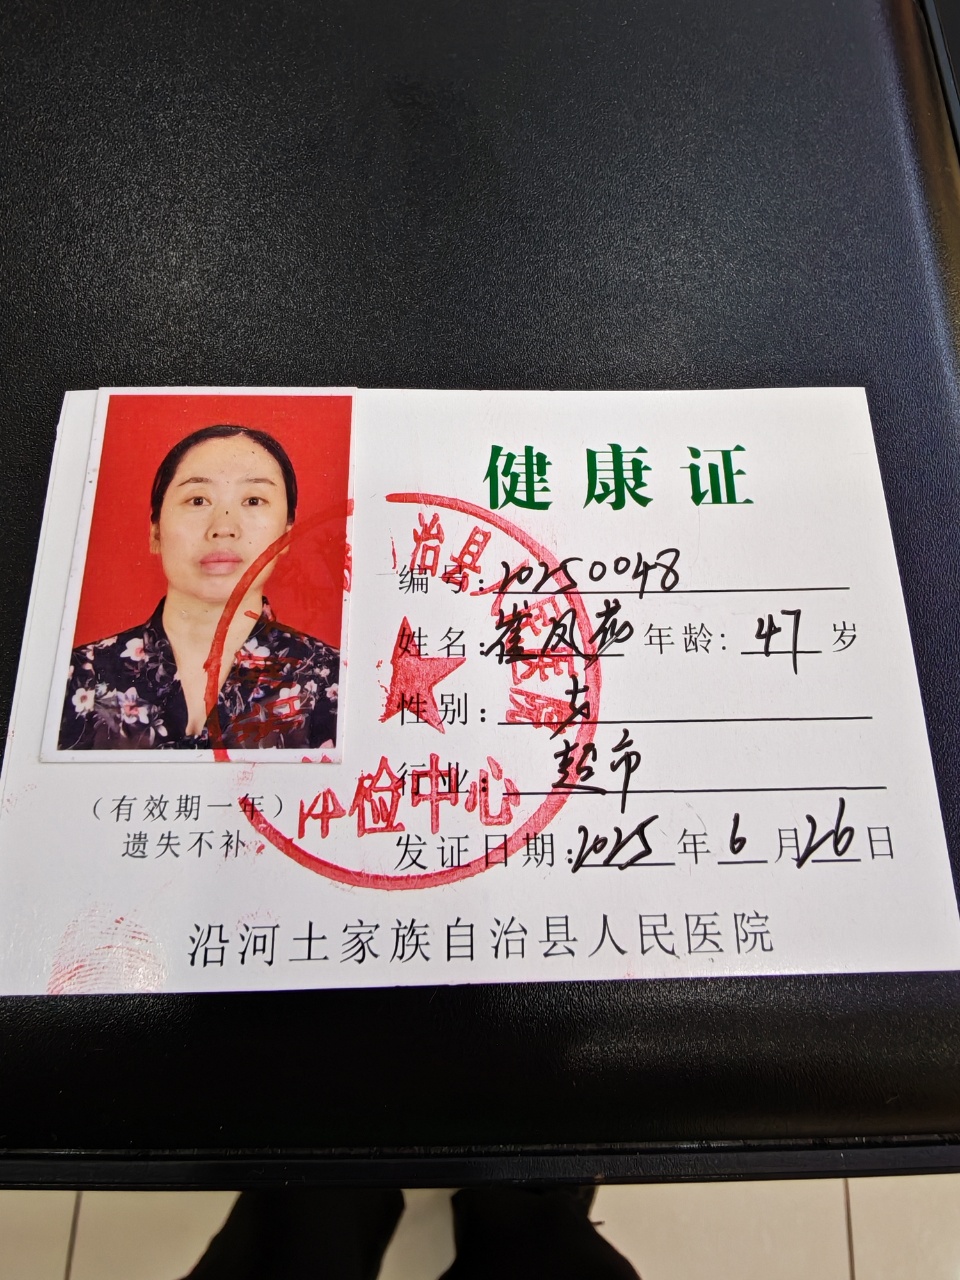 健康证
编号：20250048
姓名：崔凤 年龄：47岁
性别：女
行业：超市
（有效期一年）
遗失不补
发证日期：2025年6月26日
治县人民医院
体检中心
沿河土家族自治县人民医院